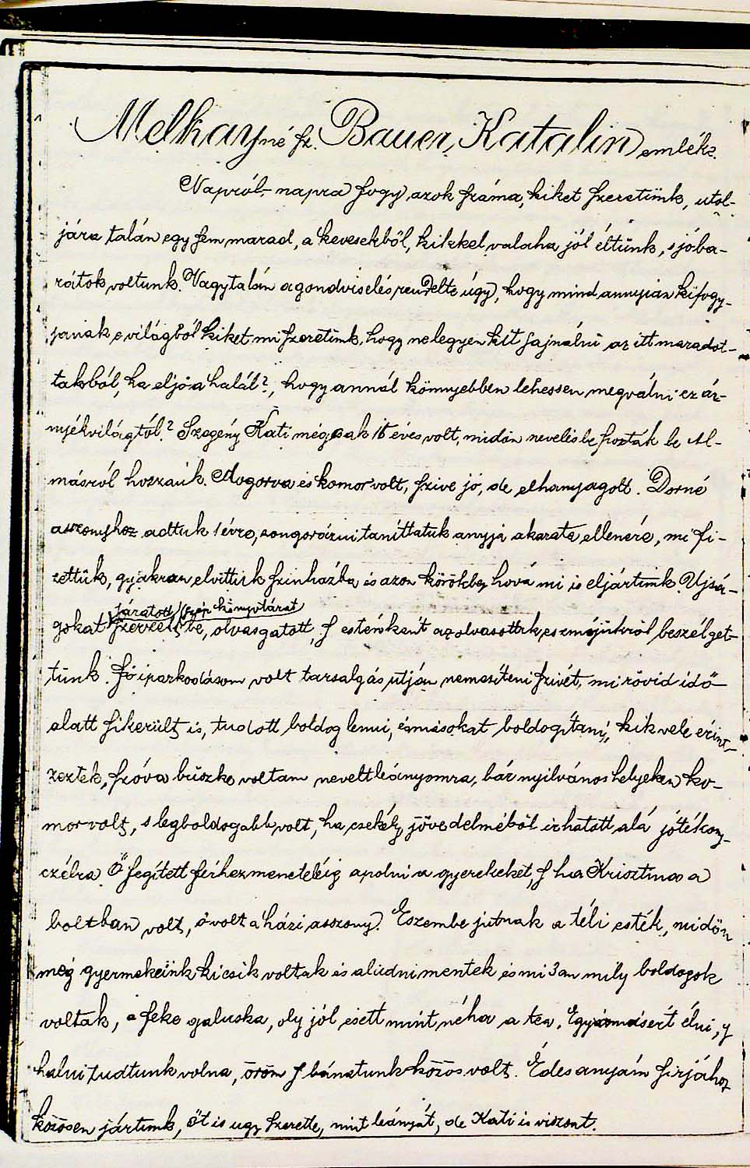 Melkayné sz. Bauer Katalin emléke.
Napról-napra fogy azok száma, kiket szeretünk, utol-
jára talán egy sem marad, a kevesekből, kikkel valaha jól éltünk, s jóba-
rátok voltunk. Vagy talán a gondviselés rendelte úgy, hogy mind annyian kifogy-
janak e világból kiket mi szeretünk, hogy ne legyen kit sajnálni az itt maradot-
takból, ha eljő a halál?, hogy annál könnyebben lehessen megválni ez ár-
nyékvilágtól? Szegény Kati még csak 16 éves volt, midőn nevelésbe hozták be Al-
másról hozzánk. Mogorva és komor volt, szive jó, de elhanyagolt. Dorné
asszonyhoz adtuk 1 évre, zongorázni taníttatuk anyja akarata ellenére, mi fi-
zettük, gyakran elvittük szinházba és azon körökbe, hová mi is eljártunk. Ujsá-
járatott gyár könyvtárat
gokat szerzett be, olvasgatott, s esténként az olvasottak eszméjükről beszélget-
tünk. Fő iparkodásom volt tarsalgás utján nemesíteni szivét, mi rövid idő
alatt sikerült is, tudott boldog lenni, és másokat boldogítani, kik vele érint-
keztek, szóva büszke voltam nevelt leányomra, bár nyilvános helyeken ko-
mor volt, s legboldogabb volt, ha csekély jövedelméből irhatott alá jótékony
czélra. Ő segített férhezmeneteléig apolni a gyerekeket, s ha Krisztina a
boltban volt, ő volt a házi asszony. Eszembe jutnak a téli esték, midőn
még gyermekeink kicsik voltak és aludni mentek és mi 3an mily boldogok
voltak, a feke galuska, oly jól esett mint néha a tea. Egymásért élni, s
halni tudtunk volna, öröm s bánatunk közös volt. Édes anyám sirjához
közösen jártunk, őt is ugy szerette, mint leányát, de Kati is viszont.